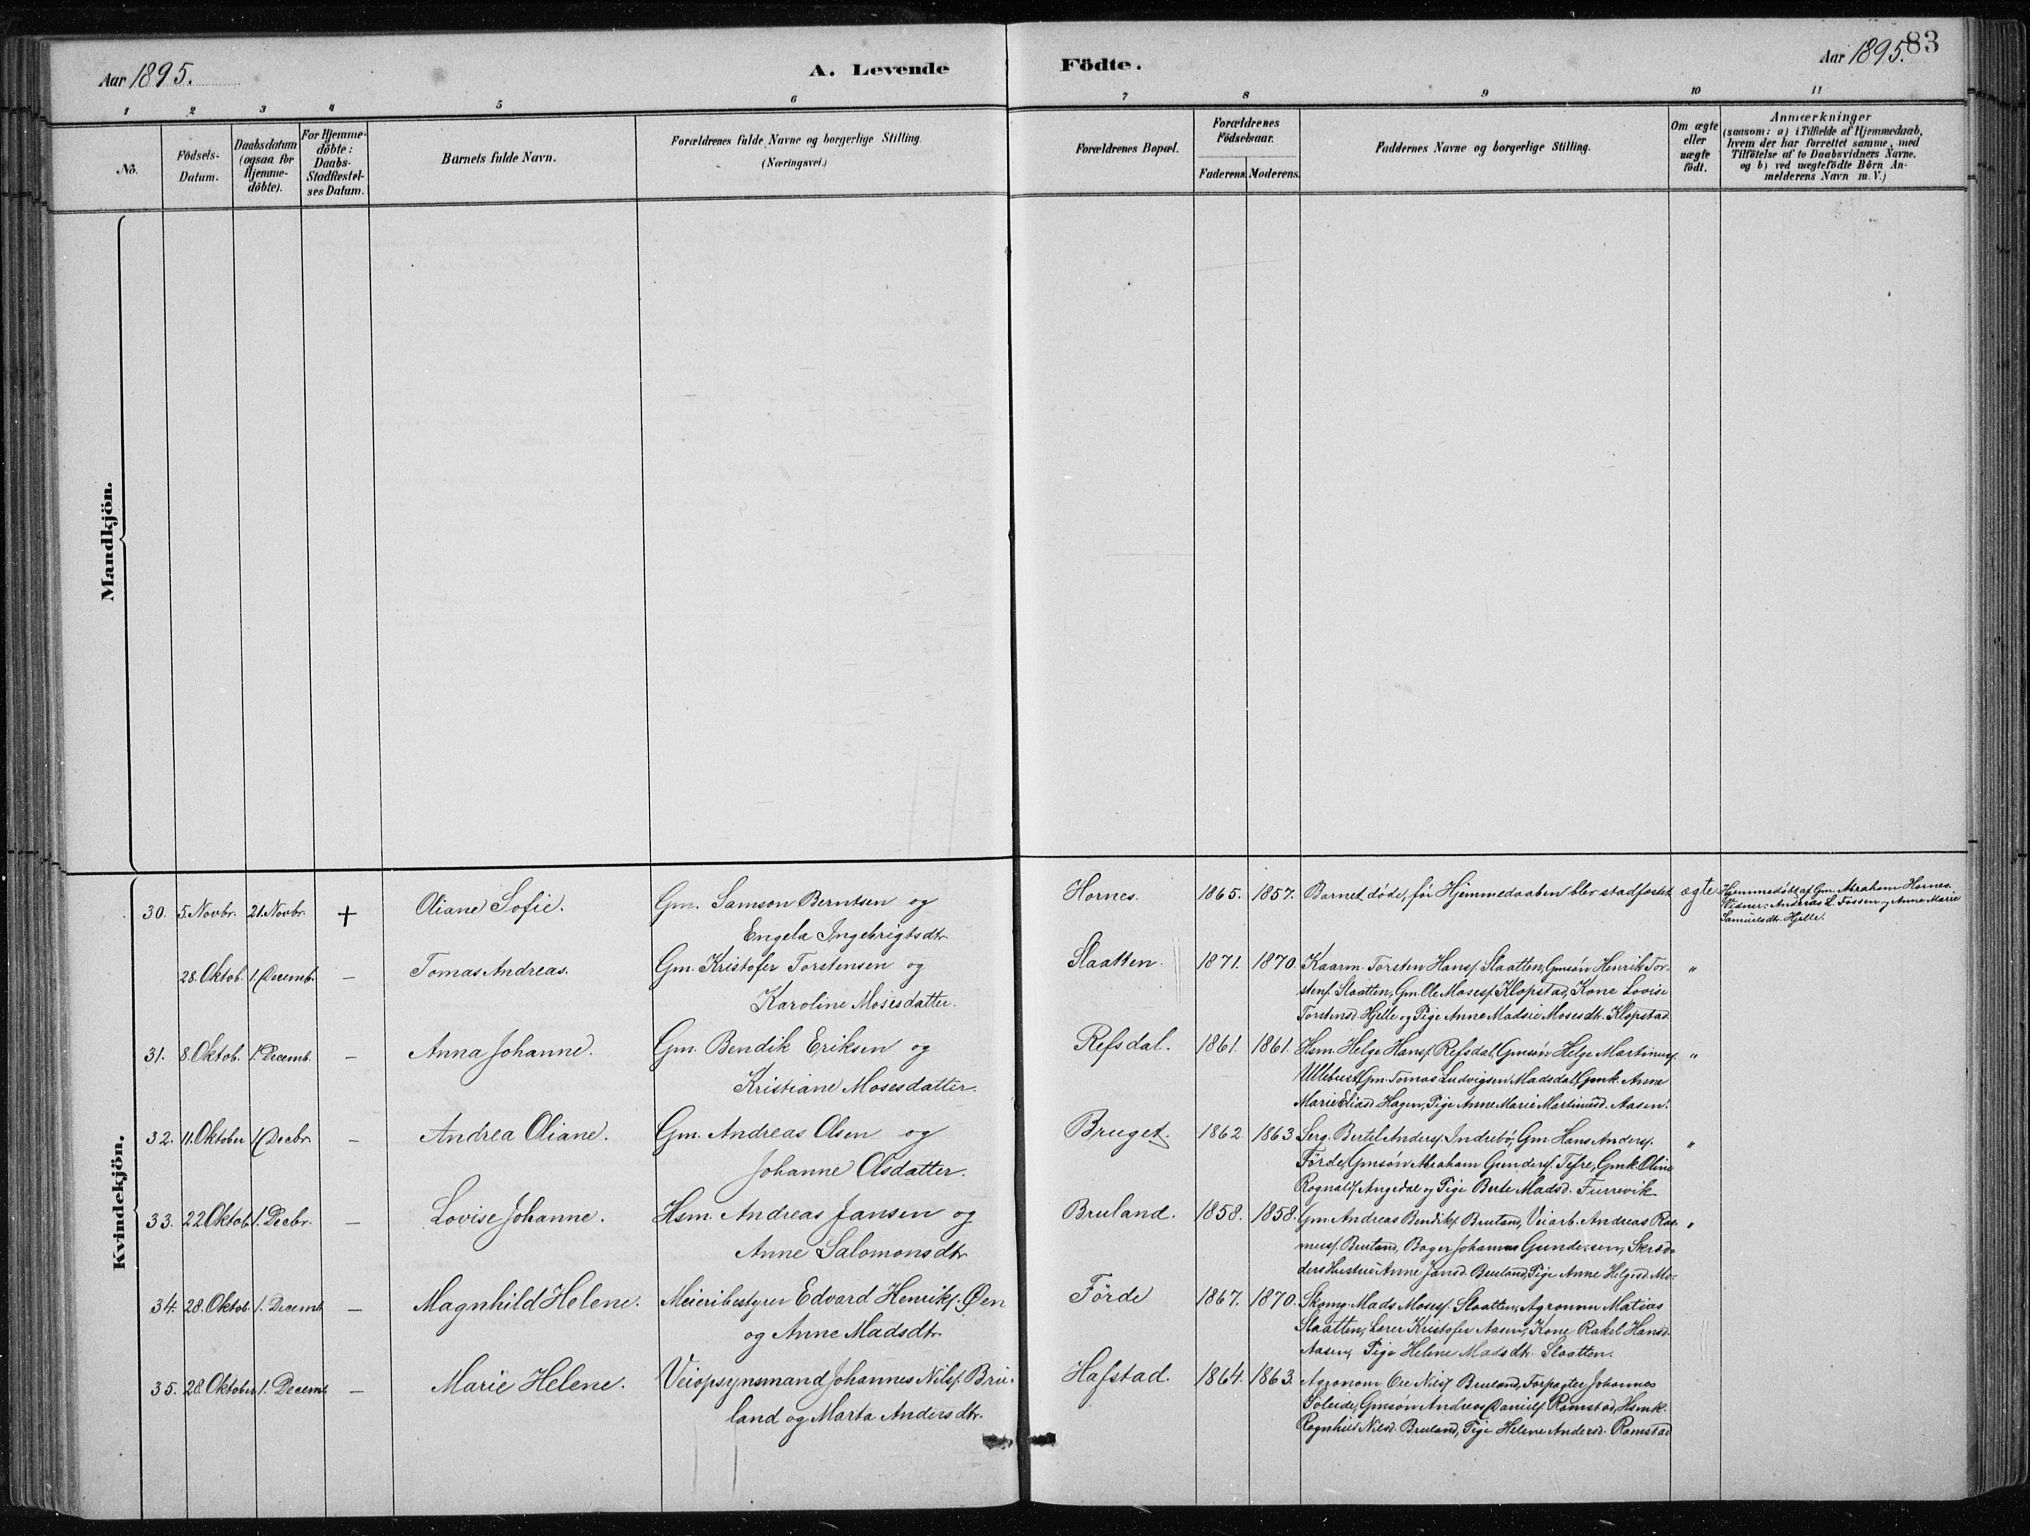 Aar 1895.
A. Levende Födte.
Aar 1895. 83
1 2 3 4 5 6 7 8 9 10 11
No.
Födsels-Datum.
Daabsdatum (ogsaa for Hjemmedöbte).
For Hjemmedöbte: Daabs-Stadfæstelses Datum.
Barnets fulde Navn.
Forældrenes fulde Navne og borgerlige Stilling.
(Næringsvei.)
Forældrenes Bopæl.
Forældrenes Födselsaar.
Faderens. Moderens.
Faddernes Navne og borgerlige Stilling.
Om ægte eller uægte födt.
Anmærkninger
(saasom: a) i Tilfælde af Hjemmedaab,
hvem der har forrettet samme, med
Tilföielse af to Daabsvidners Navne,
og b) ved uægtefödte Börn An-
melderens Navn m. V.)
Mandkjön.
Kvindekjön.
30. 5. Novbr. 21. Novbr. + Oliane Sofie. Gm. Samson Berntsen og Hornes. 1865. 1857. Barnet döde, för Hjemmedaaben blev stadfæstet ægte Hjemmedöbt af Gm. Abraham Hornes.
Engela Ingebrigtsdtr. Vidner: Andreas L. Fossen og Anne Marie
Samuelsdtr. Hjelle.
28. Oktob. 1. Decemb. – Tomas Andreas. Gm. Kristofer Torstensen og Slaatten. 1871. 1870. Kaarm. Torsten Hansf. Slaatten, Gmsøn Henrik Tor- "
Karoline Mosesdatter. stenf. Slaatten, Gm. Ole Mosesf. Klopstad, Kone Lovise
Torstensd. Hjelle og Pige Anne Madsie Mosesdtr. Klopstad.
31. 8. Oktob. 1. Decemb. – Anna Johanne. Gm. Bendik Eriksen og Refsdal. 1861. 1861. Hsm. Helge Hansf. Refsdal, Gmsøn Helge Martinusf. "
Kristiane Mosesdatter. Ullebust, Gm. Tomas Ludvigsen Madsdal, Gmk. Anne
Marie Eliasd. Hagen, Pige Anne Marie Martinusd. Aasen.
32. 11. Oktober 1. Decbr. – Andrea Oliane. Gm. Andreas Olsen og Bruget. 1862. 1863. Serg. Bertel Andersf. Indrebö, Gm. Hans Andersf. "
Johanne Olsdatter. Förde, Gmsøn Abraham Gundersf. Tefre, Gmk. Oline
Rognalsf. Angedal og Pige Berte Madsd. Furrevik
33. 22. Oktob. 1. Decbr. – Lovise Johanne. Hsm. Andreas Jansen og Bruland. 1858. 1858. Gm. Andreas Bendikf. Bruland, Veiarb. Andreas Ras- "
Anne Salomonsdtr. musf. Bruland, Bager Johannes Gundersen, Skræd-
ders Hustru Anne Jansd. Bruland, Pige Anne Helgesd. Mo.
34. 28. Oktob. 1. Decemb. – Magnhild Helene. Meieribestyrer Edvard Henrikf. Øen Förde 1867. 1870. Skomg. Mads Mosesf. Slaatten, Agronom Matias
og Anne Madsdtr. Slaatten, Lærer Kristofer Aasen, Kone Rakel Hansd.
Aasen, Pige Helene Madsdtr. Slaatten.
35. 28. Oktober 1. Decemb. – Marie Helene. Veiopsynsmand Johannes Nilsf. Bru- Hafstad. 1864. 1863. Agronom Ole Nilsf. Bruland, Forpagter Johannes
land og Marta Andersdtr. Soleide, Gmsøn Andreas Danielf. Ramstad, Hsmk.
Ragnhild Nilsd. Bruland, Pige Helene Andersd. Ramstad